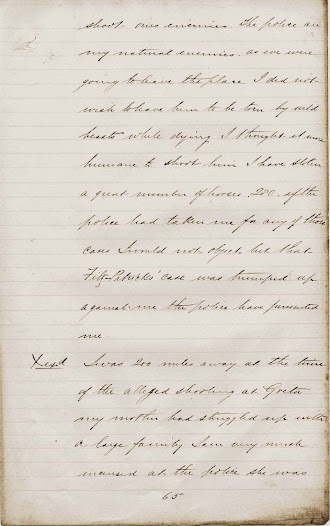 shoot ones enemies. The police are
my natural enemies. as we were
going to leave the place I did not
wish to leave him to be torn by wild
beasts while dying, I thought it more
humane to shoot him I have stolen
a great number of horses. 200. if the
police had taken me for any of those
cases I would not object but that
Fitz-Patricks' case was trumped up
against me the police have persecuted
me.
Xexd I was 200 miles away at the time
of the alleged shooting at Greta
my mother had struggled up with
a large family I am very much
incensed at the police she was
65